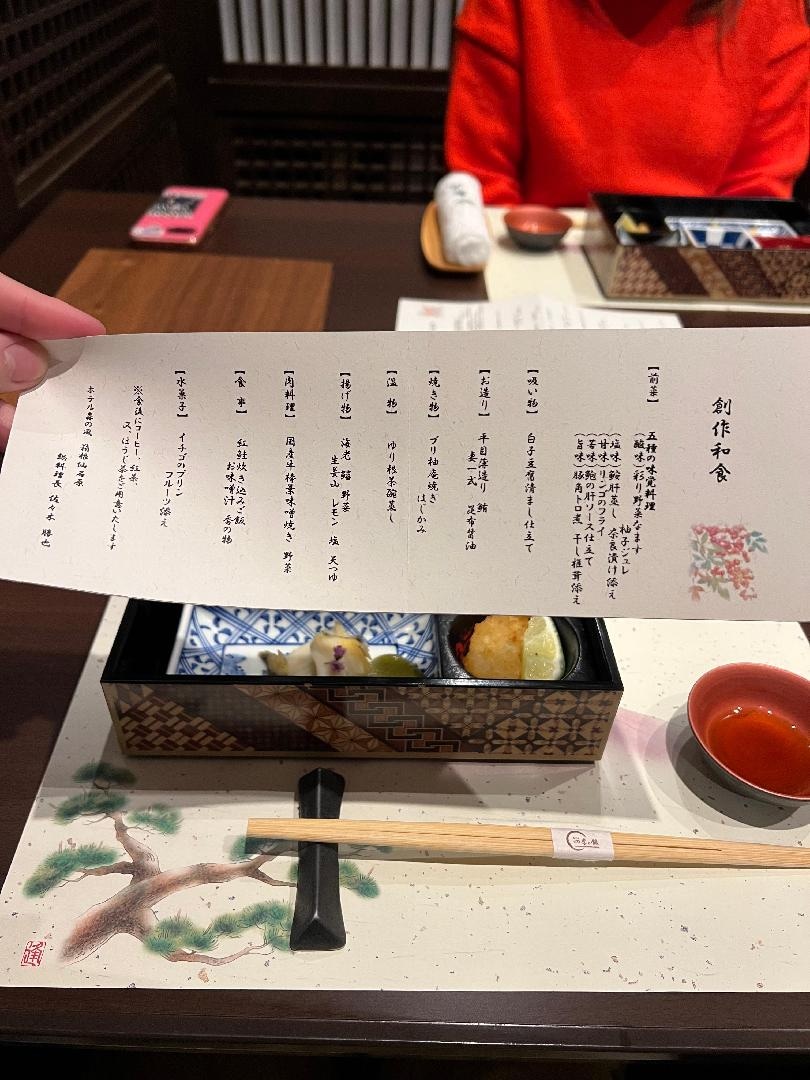 創作和食
【前菜】 五種の味覚料理
(酸味)彩り野菜なます
柚子ジュレ
(塩味)鮟肝蒸し 奈良漬け添え
(甘味)リンゴのフライ
(苦味)鮑の肝ソース仕立て
(旨味)豚角トロ煮 干し椎茸添え
【吸い物】 白子豆腐清まし仕立て
【お造り】 平目薄造り 鮪
妻一式 昆布醤油
【焼き物】 ブリ柚庵焼き
はじかみ
【温物】 ゆり根茶碗蒸し
【揚げ物】 海老 鱚 野菜
レモン 塩 天つゆ
【肉料理】 国産牛棒葉味噌焼き 野菜
【食事】 紅鮭炊き込みご飯
お味噌汁 香の物
【水菓子】 イチゴのプリン
フルーツ添え
※食後にコーヒー、紅茶、
ほうじ茶をご用意いたします
ホテル森の風 箱根仙石原
総料理長 佐々木 勝也